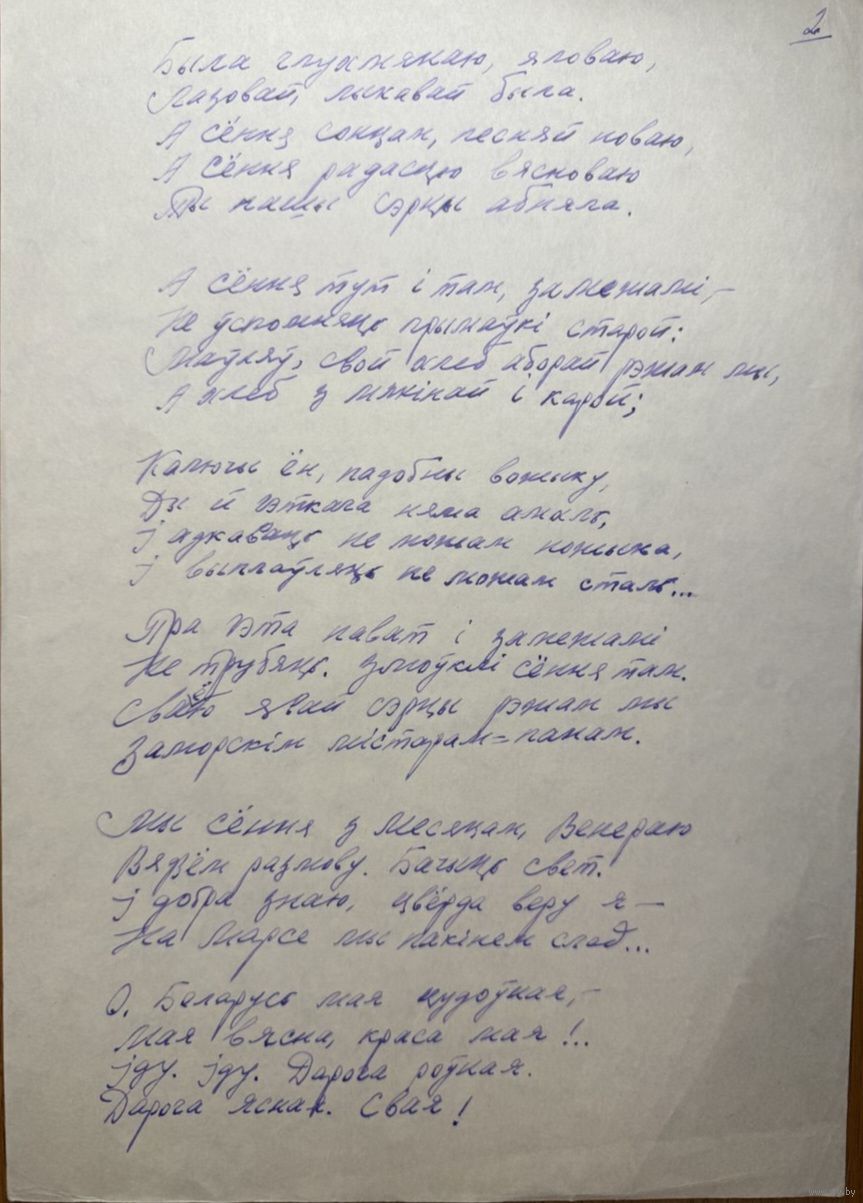 2
Была глухманаю, яловаю,
Лазовай, лыкавай была.
А сёння сонцам, песняй новаю,
А сёння радасцю вясноваю
Ты нашы сэрцы абняла.
А сёння тут і там, за межамі,—
Не ўспомняць прымаўкі старой:
Маўляў, свой хлеб аборай рэжам мы,
А хлеб з мякінай і карой;
Калючы ён, падобны вожыку,
Ды й гэткага няма амаль,
І адкаваць не можам ножыка,
І выплаўляць не можам сталь...
Пра гэта нават і за межамі
Не трубяць. Змоўклі сёння там.
Сваю ў сэрцы рэжам мы
Заморскім містарам-панам.
Мы сёння з Месяцам, Венераю
Вядзём размову. Бачыць свет.
І добра знаю, цвёрда веру я —
На Марсе мы пакінем след...
О, Беларусь мая цудоўная,—
Мая вясна, краса мая!..
Іду. Іду. Дарога роўная.
Дарога ясная. Свая!
www.sb.by